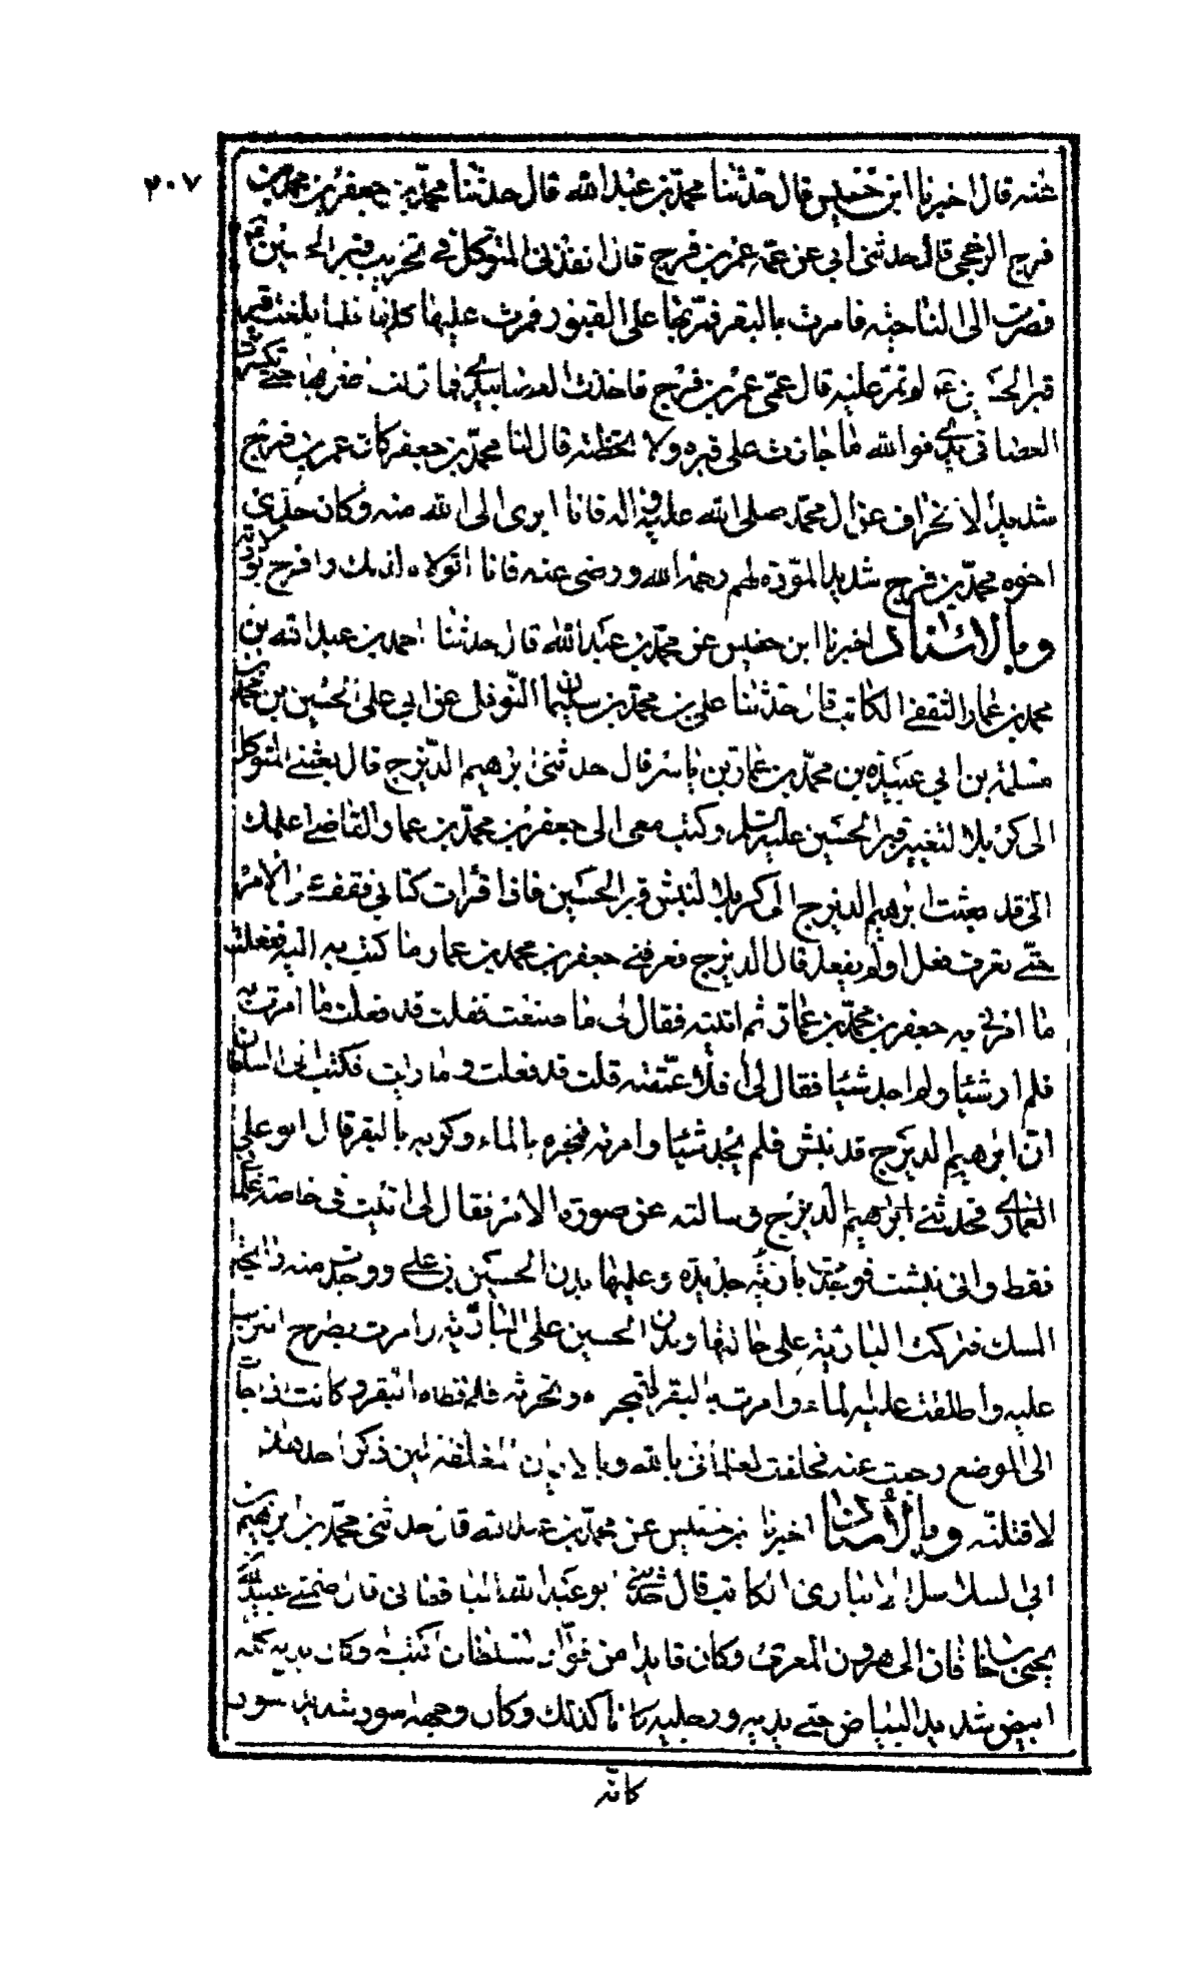 ٢٠٧
عنه قال اخبرنا ابن خنيس قال حدثنا محمد بن عبد الله قال حدثنا محمد بن جعفر بن محمد بن
فرج الرخجي قال حدثني أبي عن عمه عمر بن فرج قال انفذني المتوكل في تخريب قبر الحسين ع
فصرت الى الناحية فامرت بالبقر فمر بها على القبور فمرت عليها كلها فلما بلغت قبر
قبر الحسين ع لم تمر عليه قال عمي عمر بن فرج فاخذت العصا بيدي فما زلت اضربها حتى تكسرت
العصا في يدي فوالله ما جازت على قبره ولا تخطته قال لنا محمد بن جعفر كان عمر بن فرج
شديد الانحراف عن ال محمد صلى الله عليه واله فانا ابرئ الى الله منه وكان جدي
اخوه محمد بن فرج شديد المودة لهم رحمه الله ورضي عنه فانا اتولاه لذلك وافرح بولادته
وبالاسناد اخبرنا ابن خنيس عن محمد بن عبد الله قال حدثنا احمد بن عبد الله بن
محمد بن عمار الثقفي الكاتب قال حدثنا علي بن محمد بن سليمان النوفلي عن ابي علي الحسين بن محمد بن
مسلمة بن ابي عبيدة بن محمد بن عمار بن ياسر قال حدثني ابرهيم الديزج قال بعثني المتوكل
الى كربلا لتغيير قبر الحسين عليه السلم وكتب معي الى جعفر بن محمد بن عمار القاضي اعلمك
اني قد بعثت ابرهيم الديزج الى كربلا لنبش قبر الحسين فاذا قرات كتابي فقف على الامر
حتى تعرف فعل او لم يفعل قال الديزج فعرفني جعفر بن محمد بن عمار ما كتب به اليه ففعلت
ما امرني به جعفر بن محمد بن عمار ثم اتيته فقال لي ما صنعت فقلت قد فعلت ما امرت به
فلم ار شيئا ولم اجد شيئا فقال لي افلا عمقته قلت قد فعلت وما رايت فكتب الى السلطان
ان ابرهيم الديزج قد نبش فلم يجد شيئا وامرته فمخره بالماء وكربه بالبقر قال ابو علي
العماري فحدثني ابرهيم الديزج وسالته عن صورة الامر فقال لي اتيت في خاصة غلماني
فقط واني نبشت فوجدت بارية جديدة وعليها بدن الحسين بن علي ووجدت منه رائحة
المسك فتركت البارية على حالتها وبدن الحسين على البارية وامرت بطرح التراب
عليه واطلقت عليه الماء وامرت بالبقر لتمخره وتحرثه فلم تطاه البقر وكانت اذا جات
الى الموضع رجعت عنه فحلفت لغلماني بالله وبالايمان المغلظة لئن ذكر احد هذا
لاقتلنه وبالاسناد اخبرنا ابن خنيس عن محمد بن عبد الله قال حدثني محمد بن ابرهيم بن
ابي السلاسل الانباري الكاتب قال حدثني ابو عبد الله الباقطاني قال ضمني عبيد الله بن
يحيى بن خاقان الى هرون المعري وكان قايدا من قواد السلطان اكتب له وكان بدنه كله
ابيض شديد البياض حتى يديه ورجليه كانا كذلك وكان وجهه اسود شديد السواد
كانه